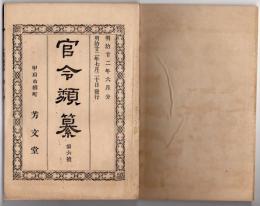 明治廿二年六月分
明治廿二年七月二十日發行
官令類纂
第六號
甲府市櫻町
芳文堂